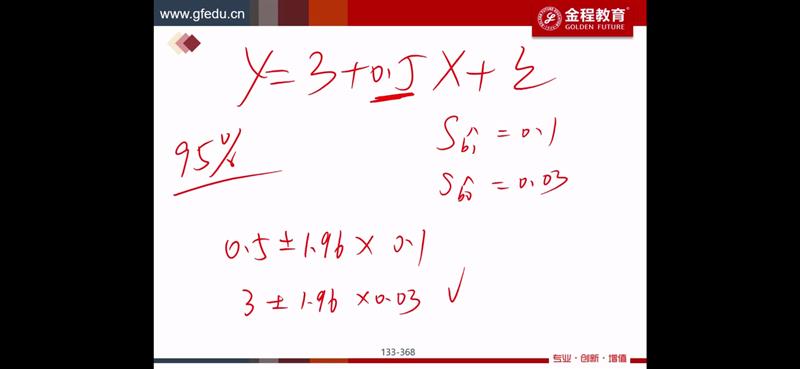 www.gfedu.cn
金程教育
GOLDEN FUTURE
Y = 3 + 0.5 X + ξ
95%
S b̂₁ = 0.1
S b̂₀ = 0.03
0.5 ± 1.96 × 0.1
3 ± 1.96 × 0.03 √
133-368
专业·创新·增值